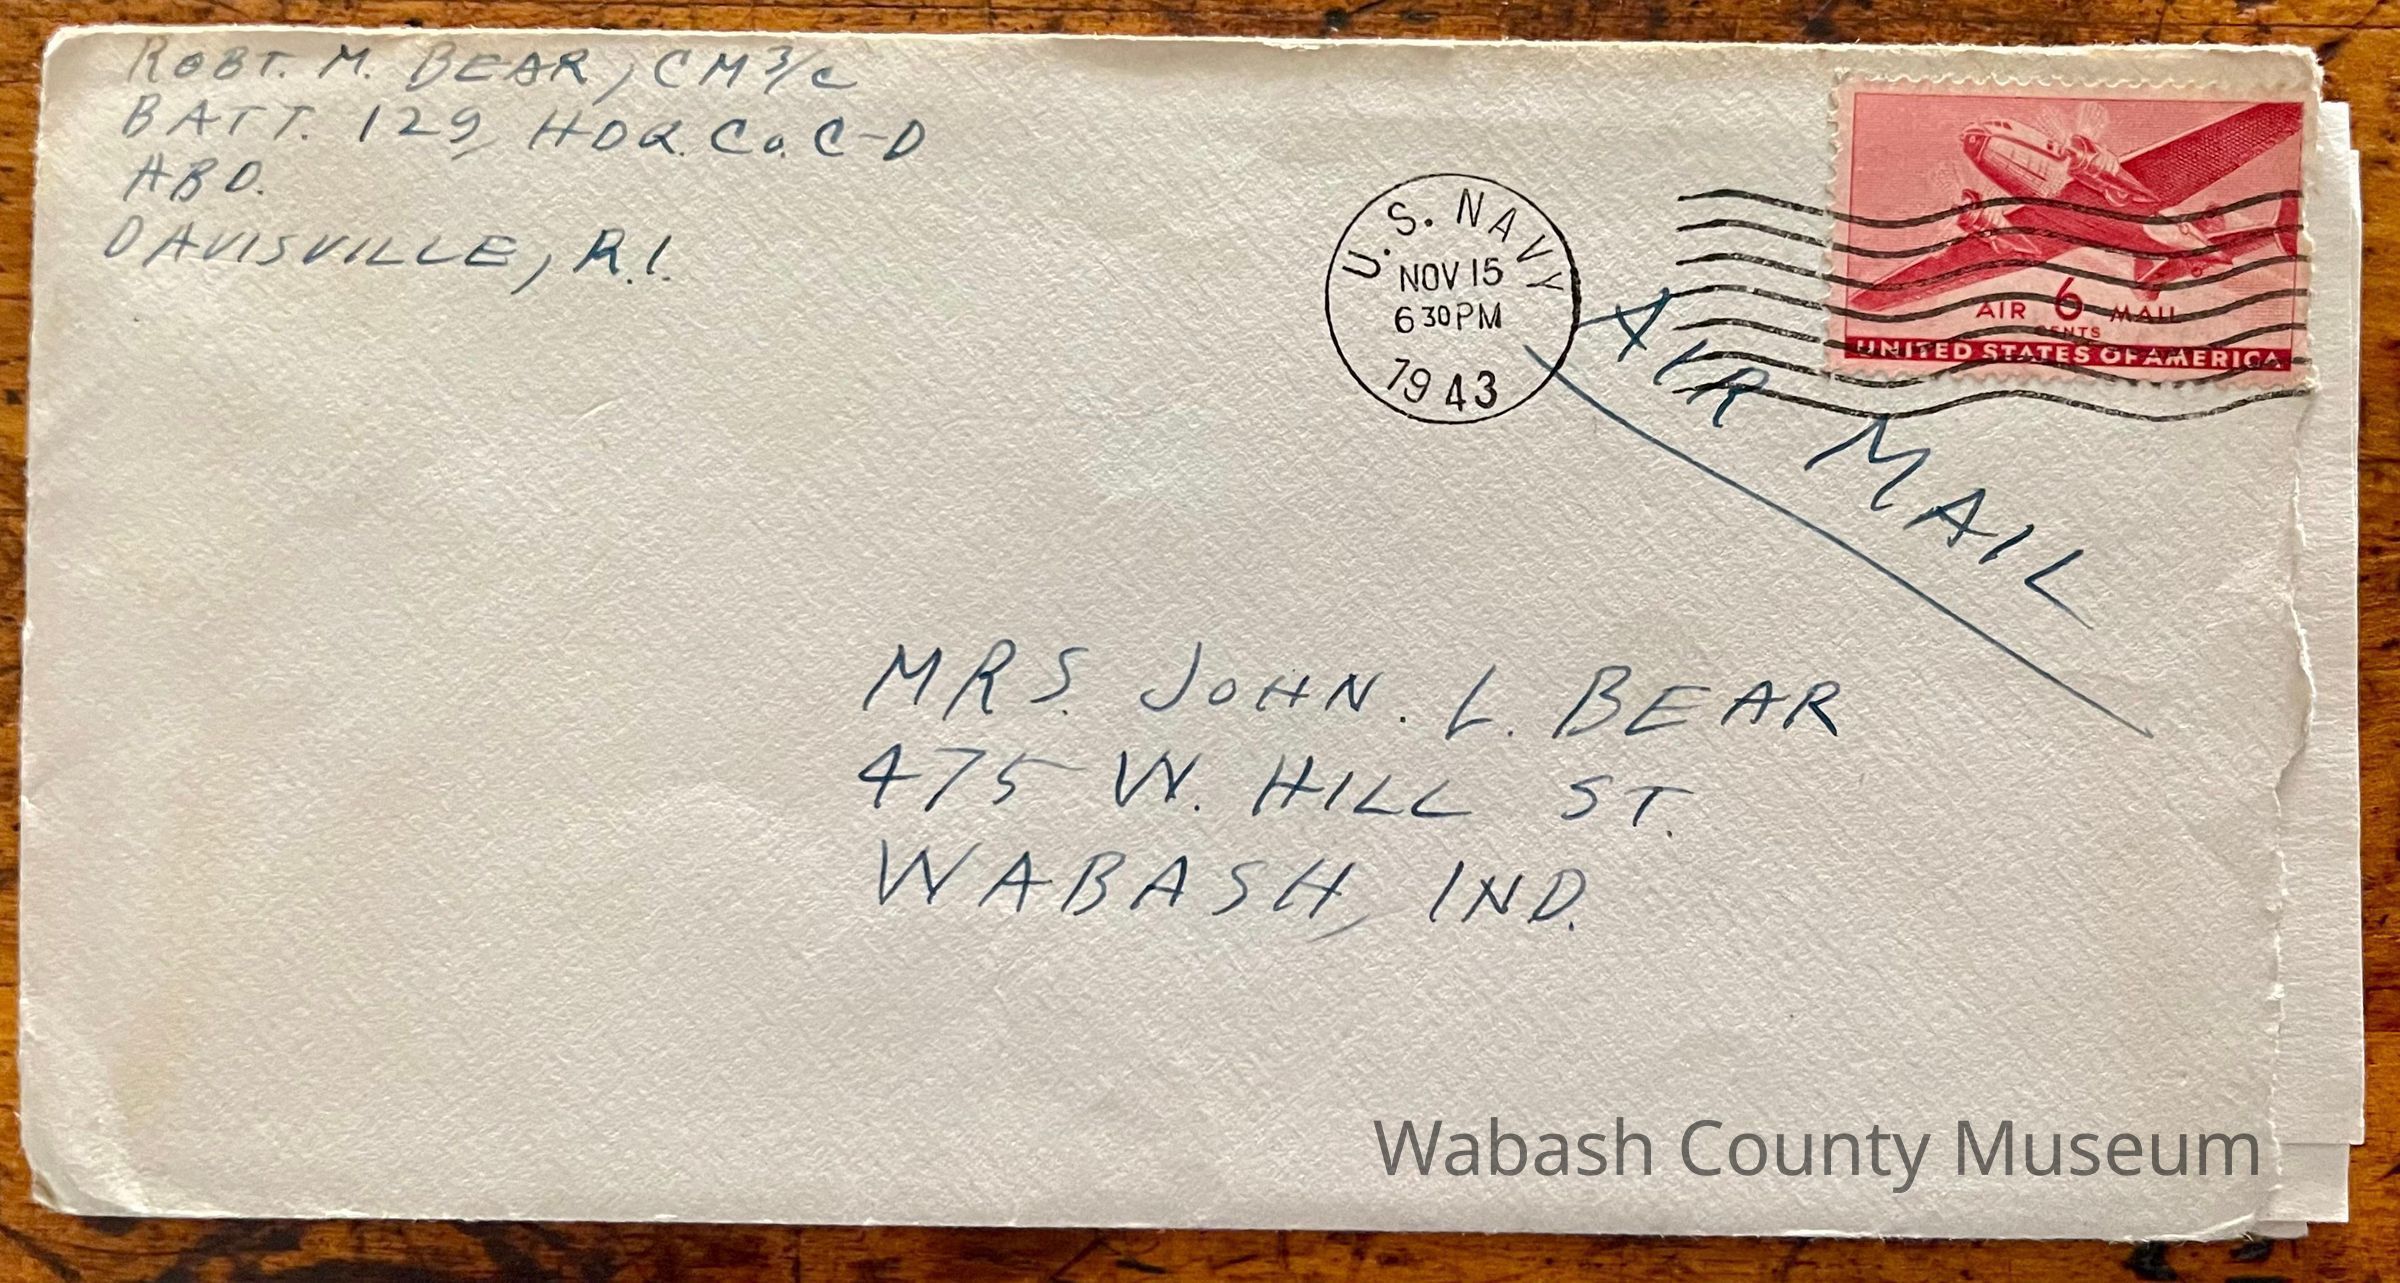 ROBT. M. BEAR, CM 3/c
BATT. 129, HDQ. Co. C-D
ABD.
DAVISVILLE, R.I.
U.S. NAVY
NOV 15
6 30 PM
1943
AIR 6 MAIL
CENTS
UNITED STATES OF AMERICA
AIR MAIL
MRS. JOHN. L. BEAR
475 W. HILL ST.
WABASH, IND.
Wabash County Museum